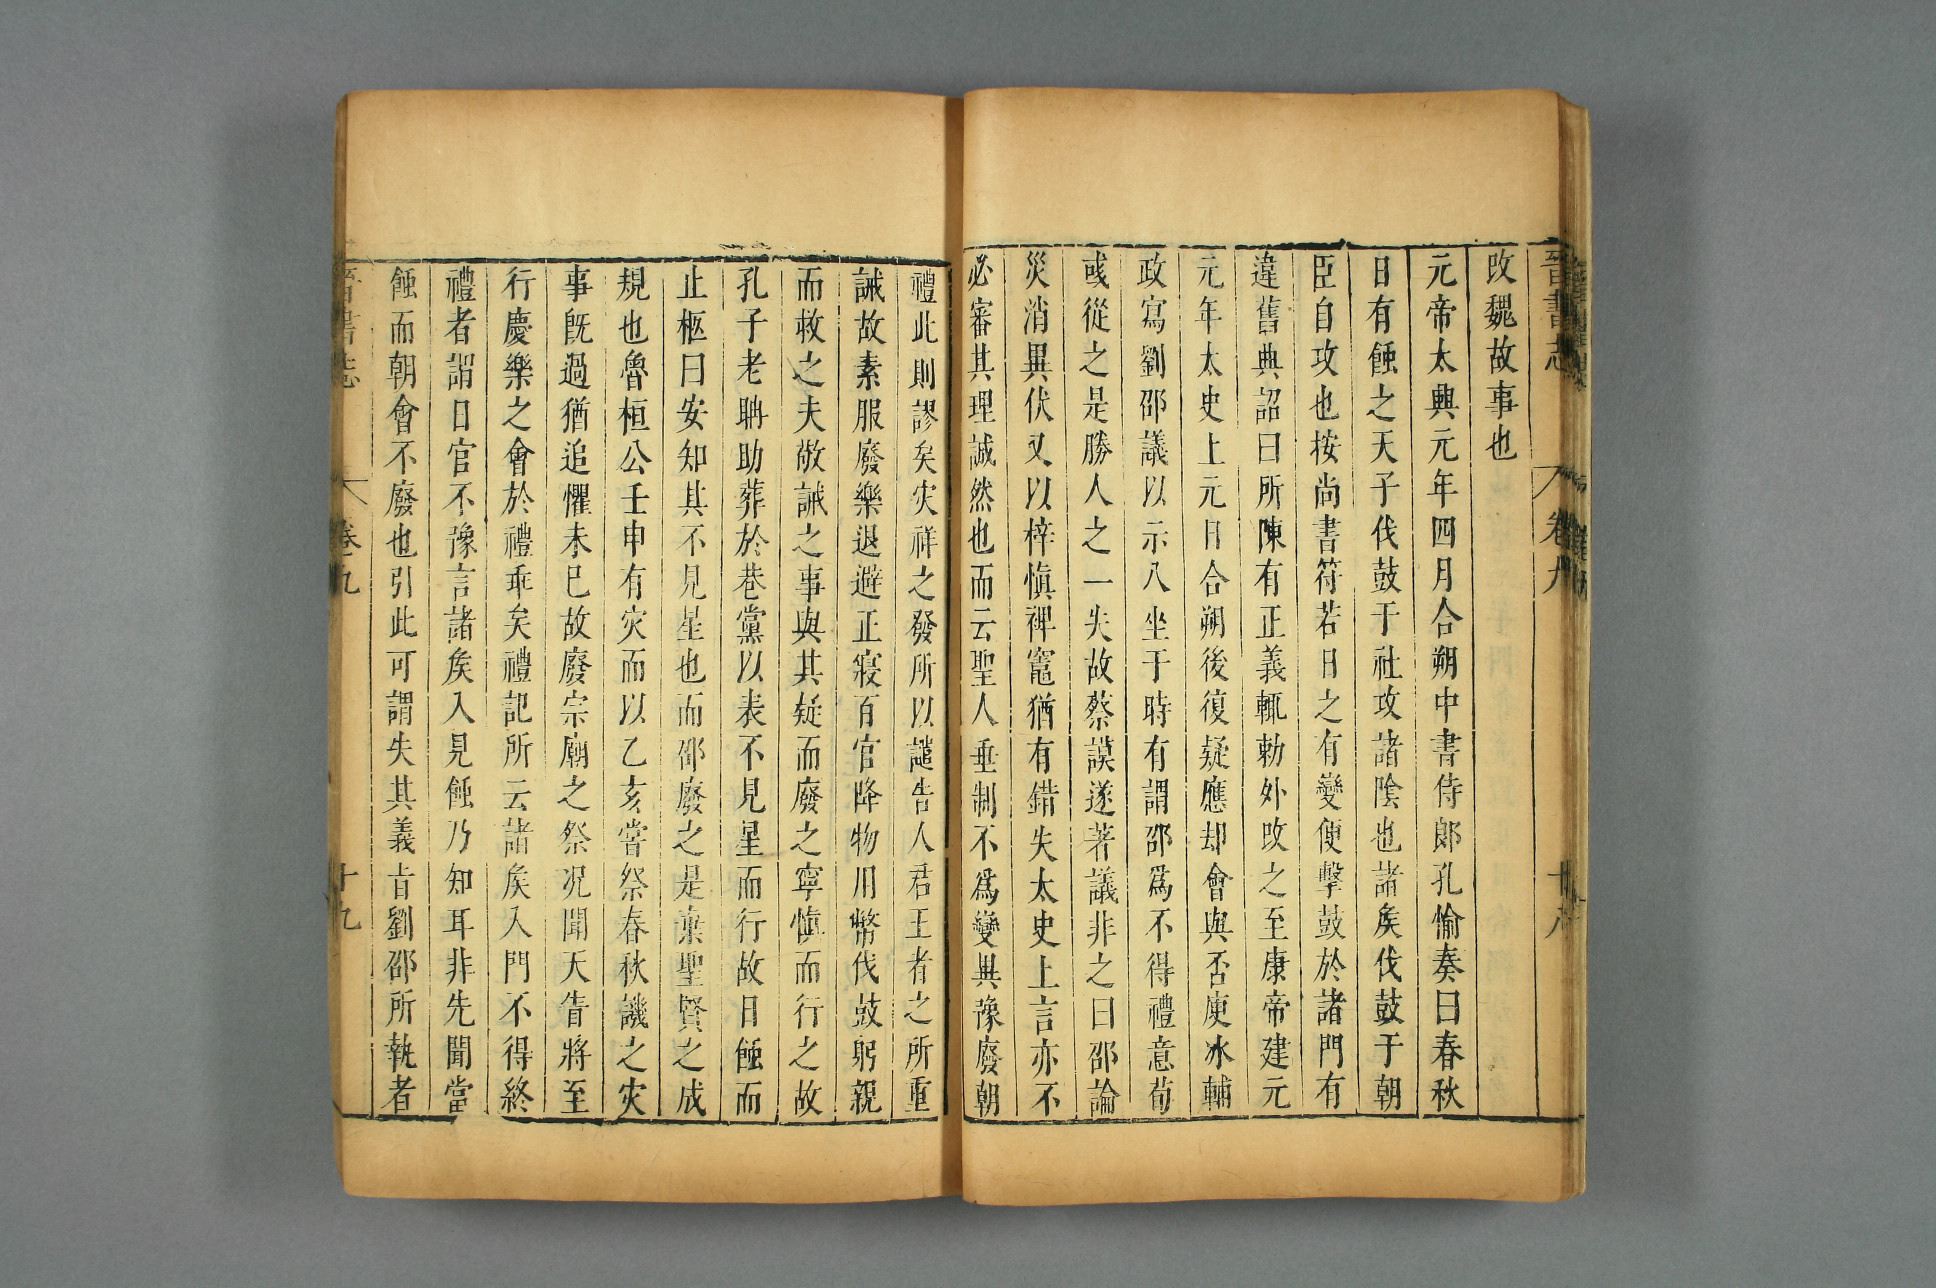 晉書志 卷九 十八
攺魏故事也
元帝太興元年四月合朔中書侍郎孔愉奏曰春秋
日有蝕之天子伐鼓于社攻諸陰也諸矦伐鼓于朝
臣自攻也按尚書符若日之有變便擊鼓於諸門有
違舊典詔曰所陳有正義輒勅外攺之至康帝建元
元年太史上元日合朔後復疑應却會與否庾冰輔
政寫劉邵議以示八坐于時有謂邵爲不得禮意荀
彧從之是勝人之一失故蔡謨遂著議非之曰邵論
災消異伏又以梓慎禆竈猶有錯失太史上言亦不
必審其理誠然也而云聖人垂制不爲變異豫廢朝
禮此則謬矣灾祥之發所以譴告人君王者之所重
誡故素服廢樂退避正寢百官降物用幣伐鼓躬親
而救之夫敬誡之事與其疑而廢之寧慎而行之故
孔子老聃助葬於巷黨以表不見星而行故日蝕而
止柩曰安知其不見星也而邵廢之是棄聖賢之成
規也魯桓公壬申有灾而以乙亥嘗祭春秋譏之灾
事旣過猶追懼未已故廢宗廟之祭况聞天眚將至
行慶樂之會於禮乖矣禮記所云諸矦入門不得終
禮者謂日官不豫言諸矦入見蝕乃知耳非先聞當
蝕而朝會不廢也引此可謂失其義旨劉邵所執者
晉書志 卷九 十九